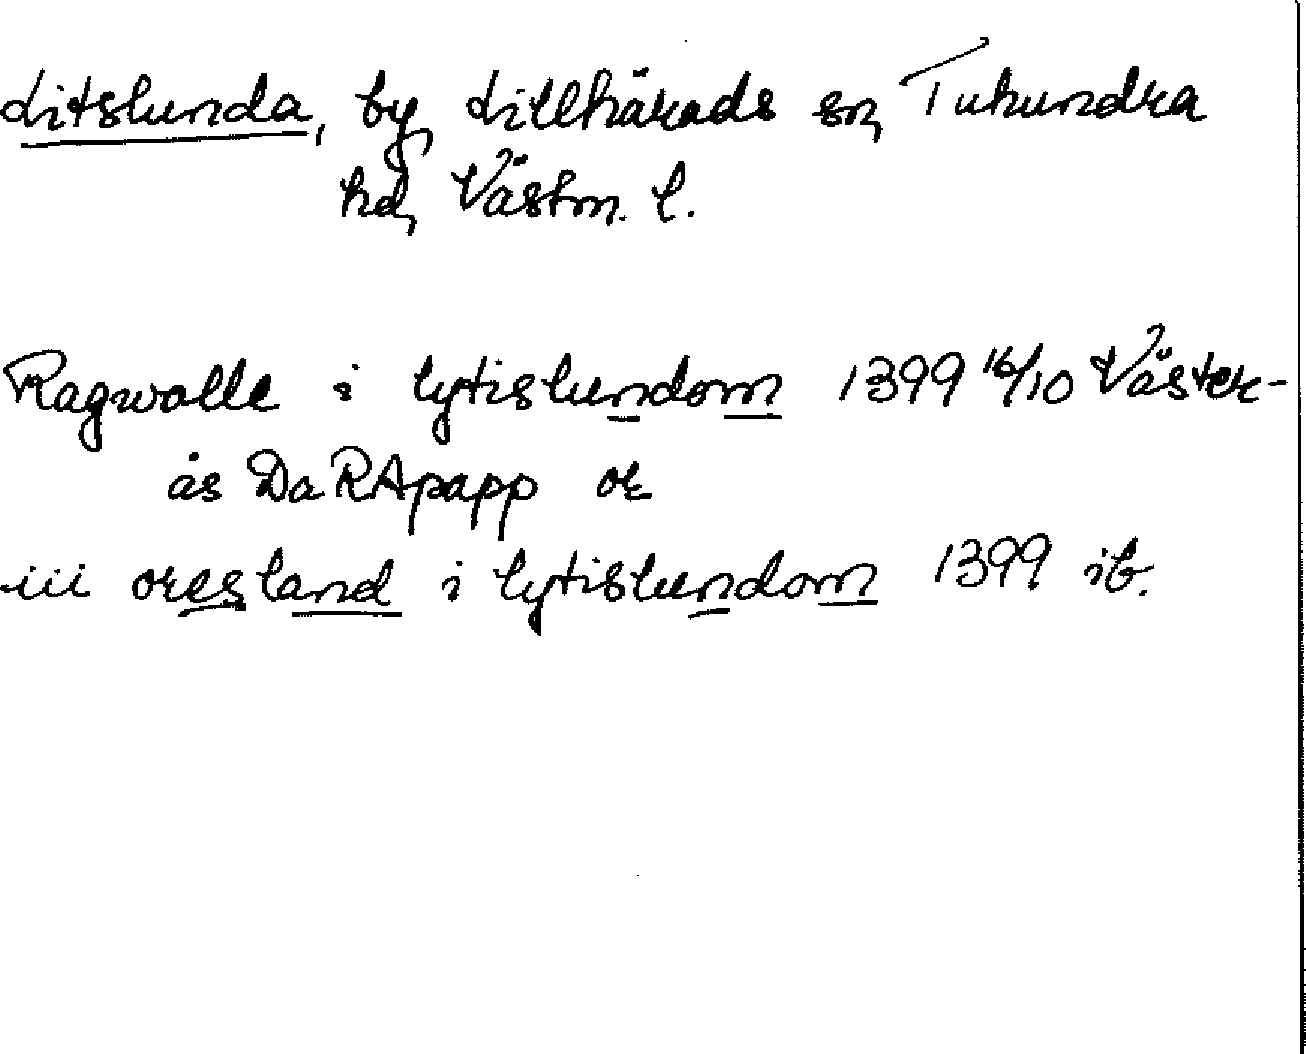 Litslunda, by, Lillhärads sn, Tuhundra
hd, Västm. l.
Ragwalle i lytislundom 1399 16/10 Väster-
ås Da RApapp or
iii oresland i lytislundom 1399 ib.